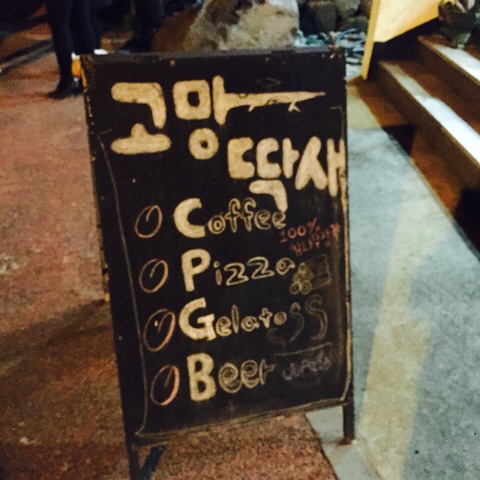 고망
딱새
Coffee
100%
Pizza
Gelato
Beer